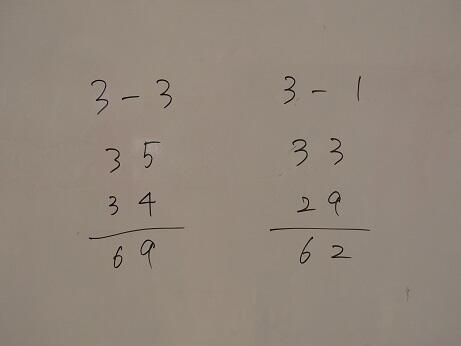 3 - 3
35
34
69
3 - 1
33
29
62